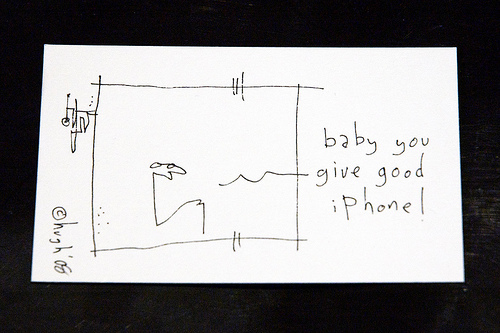 baby you
give good
iphone!
©hugh '08